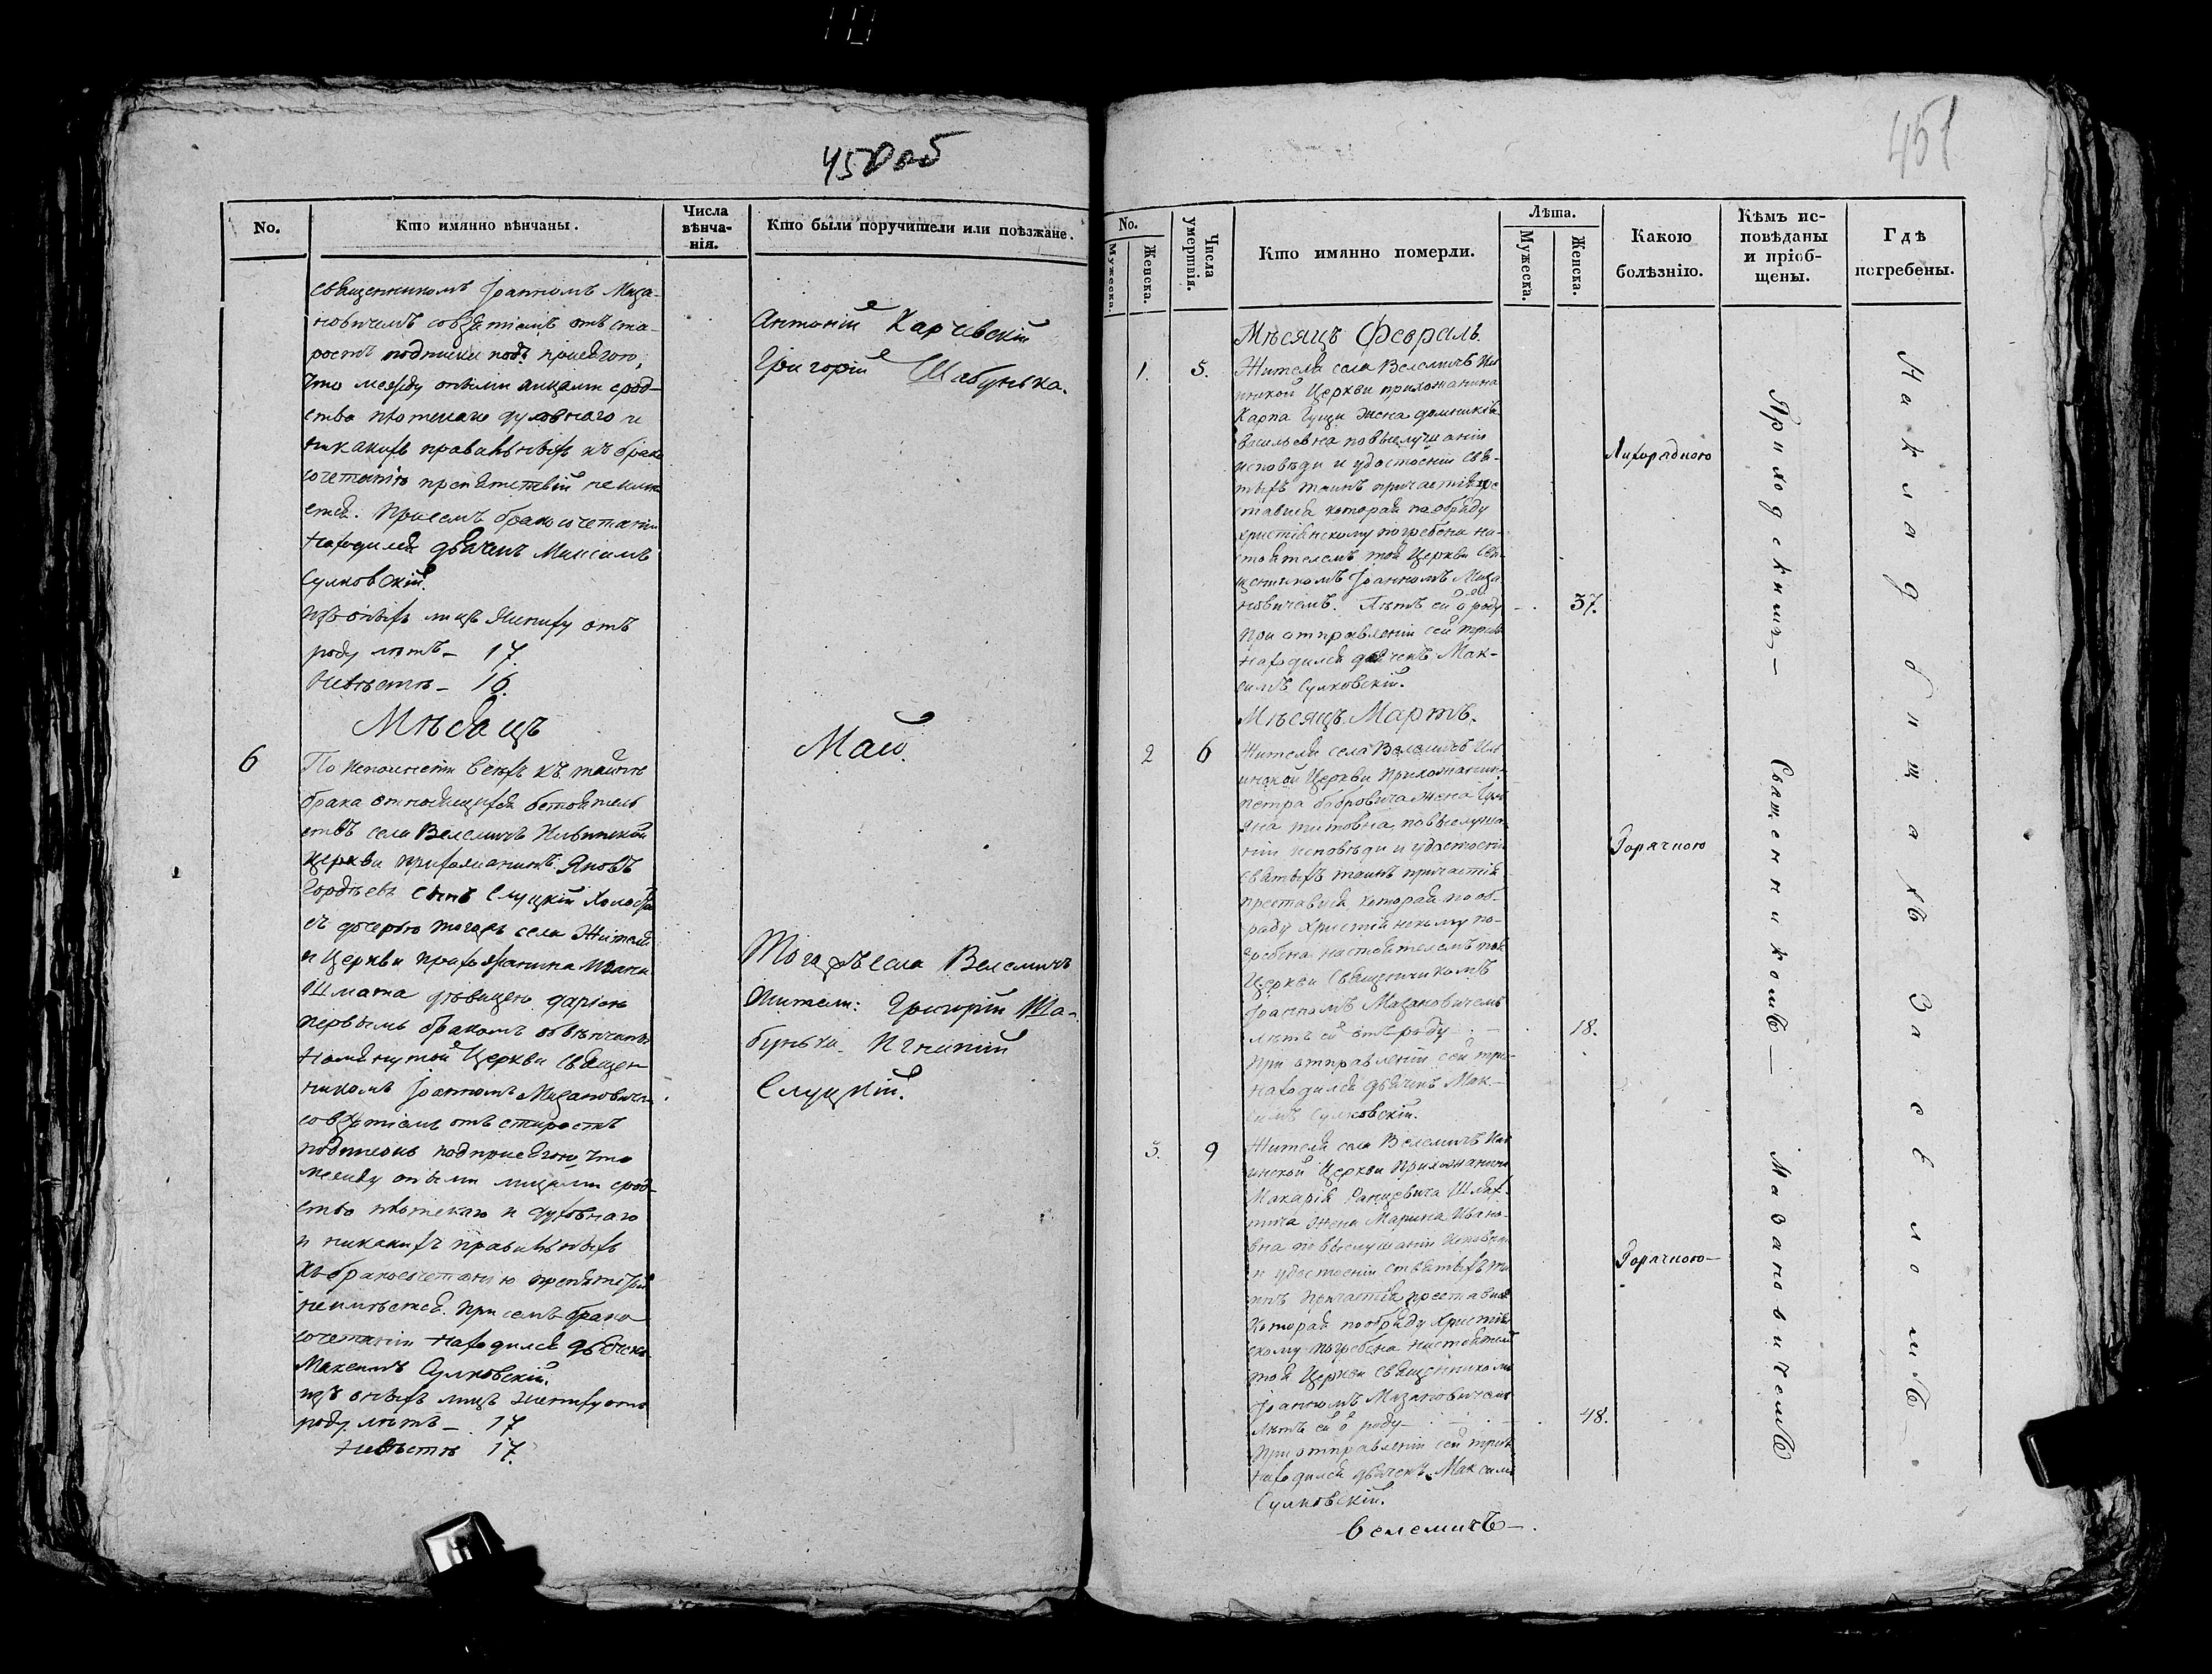 450 об
No.
Кто имянно вѣнчаны.
Числа вѣнча-
нія.
Кто были поручители или поѣзжане.
священникомъ Іоанномъ Маза-
новичемъ совзятіемъ отъ ста-
ростъ подписки подъ присягою,
что между оными лицами срод-
ства плотскаго духовнаго и
никакихъ правильныхъ къ брако
сочетанію препятствій неимѣ
ется. При семъ бракосочетаніи
находился дьячекъ Максимъ
Сулковскій.
изъ оныхъ лицъ жениху отъ
роду лѣтъ – 17.
Невѣстѣ – 16.
Антоній Карчевскій
Григорій Шабунька.
Мѣсяцъ
Май.
6
По исполненіи всѣхъ къ тайнѣ
брака относящихся обстоятель
ствъ села Велемичъ Ильинской
Церкви прихожанинъ Яковъ
Гордѣевъ сынъ Слуцкій холостъ
съ дочерью тогожъ села Жителя
и Церкви прихожанина Ивана
Шмата дѣвицею Даріею
первымъ бракомъ обвѣнчаны
помянутой Церкви Священ
никомъ Іоанномъ Мазановичемъ
совзятіемъ отъ старостъ
подписки подприсягою, что
между оными лицами срод-
ства плотскаго и духовнаго
и никакихъ правильныхъ
къбракосочетанію препятствій
неимѣется. При семъ брако
сочетаніи находился дьячекъ
Максимъ Сулковскій.
изъ оныхъ лицъ жениху отъ
роду лѣтъ – 17
Невѣстѣ 17.
Тогожъ села Велемичъ
жители: Григорій Ша-
бунька. Игнатій
Слуцкій.
451
No.
Мужеска.
Женска.
Числа
умертвія.
Кто имянно померли.
Лѣта.
Мужеска.
Женска.
Какою
болѣзнію.
Кѣмъ ис-
повѣданы
и пріоб-
щены.
Гдѣ
погребены.
Мѣсяцъ Февраль.
1. 5.
Жителя села Велемичъ Иль
инской Церкви прихожанина
Карпа Гущи жена Домникія
Васильевна повыслушаніи
исповѣди и удостоеніи Свя-
тыхъ таинъ причастія пре
ставися которая по обряду
христіянскому погребена на-
стоятелемъ той Церкви Свя-
щенникомъ Іоанномъ Маза-
новичемъ. Лѣтъ ей о роду
37.
При отправленіи сей требы
находился дьячекъ Мак-
симъ Сулковскій.
Лихорадкою
Мѣсяцъ Мартъ.
2 6
Жителя села Велемичъ Иль
инской Церкви Прихожанин
Петра Бобровича жена
Титовна, повыслуша-
ніи исповѣди и удостоеніи
Святыхъ таинъ причастія
преставися которая по об-
ряду Христіянскому по-
гребена настоятелемъ той
Церкви Священникомъ
Іоанномъ Мазановичемъ
лѣтъ ей отъ роду –
18.
При отправленіи сей тре-
находился дьячекъ Мак-
симъ Сулковскій.
Горячкою
3. 9
Жителя села Велемичъ Иль
инской Церкви Прихожанина
Макарія
жена Марина Ивано-
вна повыслушаніи Исповѣди
и удостоеніи святыхъ та
инъ Причастія преставися
Которая пообряду Христіян
скому погребена настоятелем
той Церкви Священникомъ
Іоанномъ Мазановичемъ
Лѣтъ ей о роду –
48.
При отправленіи сей требы
находился дьячекъ Максимъ
Сулковскій.
Горячкою –
Велемичъ –.
Приходскимъ – Священникомъ – Мазановичемъ
На кладбищахъ Засѣломъ –